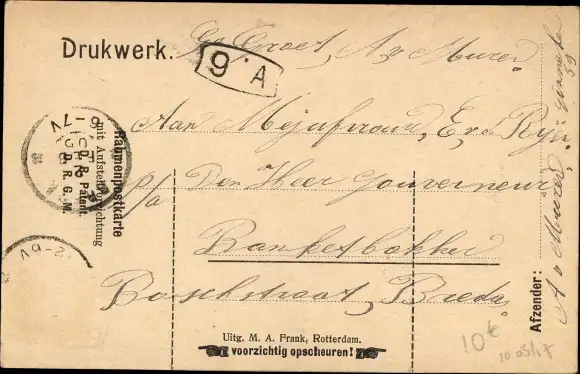 Drukwerk.
Gr. Groet, A v Muren.
9. A
Aan Mejufrouw, E. v Rijn,
p/a Den Heer Gouverneur
Banketbakker
Boschstraat, Breda.
Rahmenpostkarte
mit Aufstellvorrichtung
D. R. Patent.
D. R. G. M.
Uitg. M. A. Frank, Rotterdam.
voorzichtig opscheuren!
Afzender:
A v Muren
59
10€